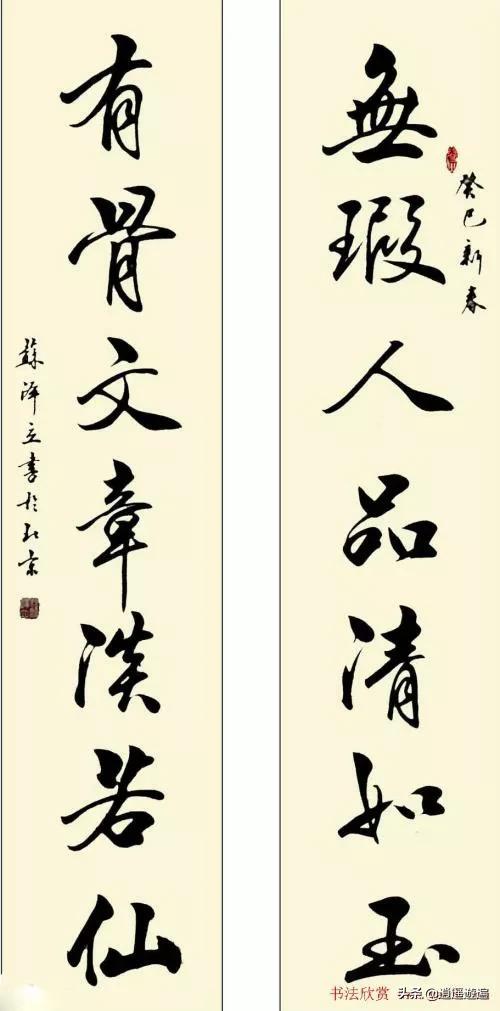 無瑕人品清如玉
癸巳新春
有骨文章淡若仙
蘇澤立書於北京
书法欣赏
头条@逍遥遊遍